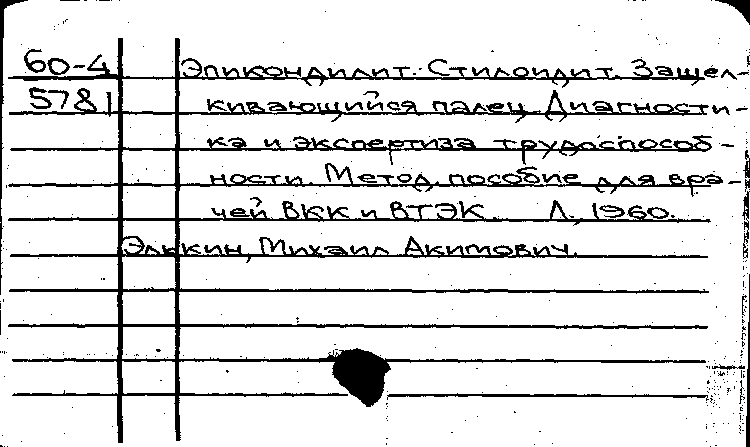 60-4 Эпикондилит. Стилоидит. Защел-
5781 кивающийся палец. Диагности-
ка и экспертиза трудоспособ-
ности. Метод. пособие для вра-
чей ВКК и ВТЭК. Л., 1960.
Элькин, Михаил Акимович.